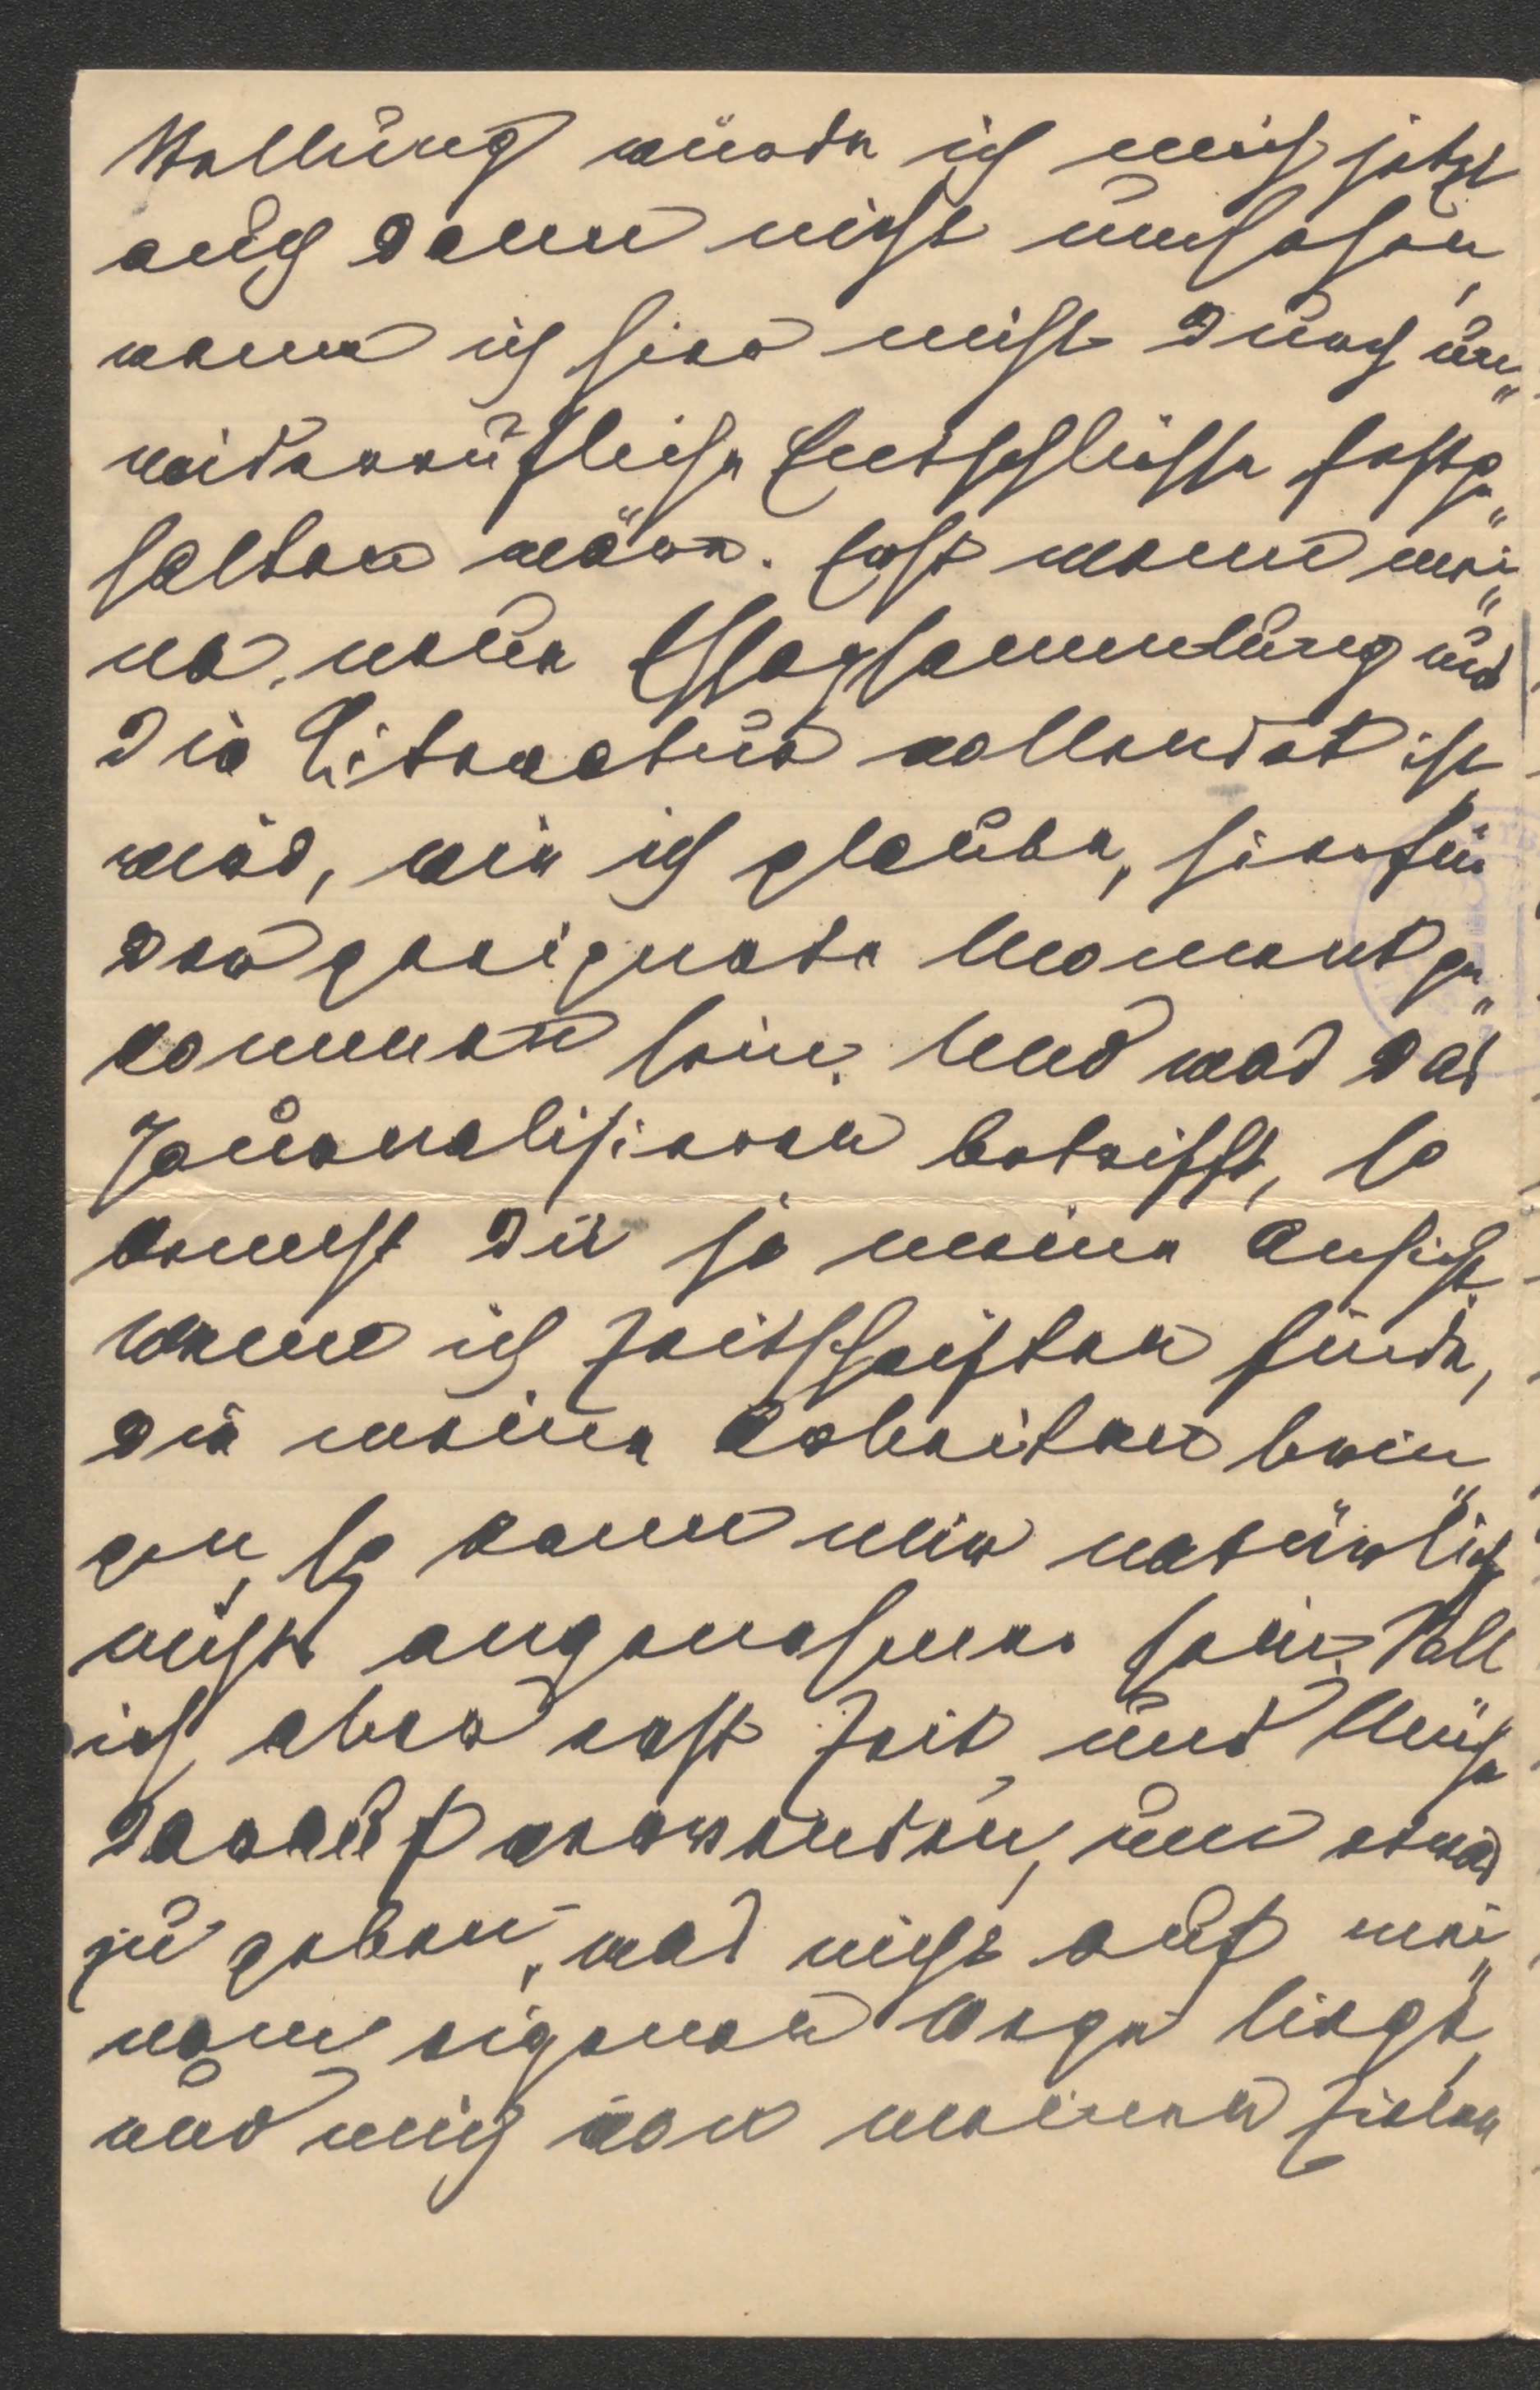 Stellung würde ich mich jetzt
auch dann nicht umsehen,
wenn ich hier nicht durch un„
widerrufliche Entschlüsse festge„
halten wäre. Erst wenn mei„
ne neue Essaysammlung und
die Literatur vollendet ist,
wird, wie ich glaube, hierfür
der geeignete Moment ge„
kommen sein. Und was das
Journalisieren betrifft, so
kennst Du ja meine Ansicht.
Wenn ich Zeitschriften finde,
die meine Arbeiten brin„
gen, so kann mir natürlich
nichts angenehmer sein. Soll
ich aber erst Zeit und Mühe
darauf verwenden, um etwas
zu geben, was nicht auf mei„
nem eigenen Wege liegt,
und mich von meinen Zielen